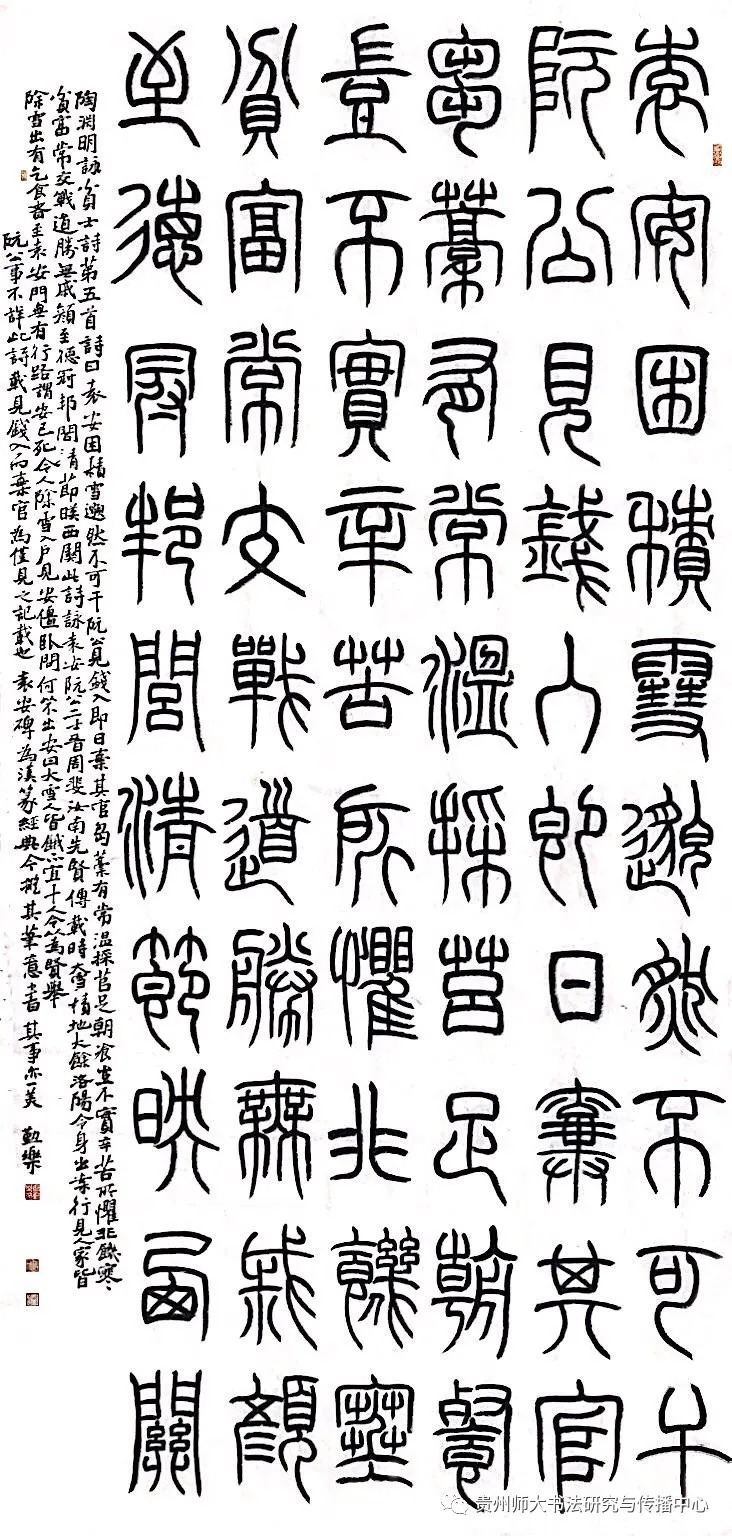 袁安困積雪邈然不可干
阮公見錢入即日棄其官
芻藁有常溫採莒足朝餐
豈不實辛苦所懼非饑寒
貧富常交戰道勝無戚顏
至德冠邦閭清節映西關
陶淵明詠貧士詩第五首詩曰袁安困積雪邈然不可干阮公見錢入即日棄其官芻藁有常温採莒足朝飡豈不實辛苦所懼非饑寒
貧富常交戰道勝無戚顏至德冠邦閭清節映西關此詩詠袁安阮公二士晉周斐汝南先賢傳載時大雪積地丈餘洛陽令身出案行見人家皆
除雪出有乞食者至袁安門無有行路謂安已死令人除雪入户見安僵卧問何不出安曰大雪人皆餓不宜干人令以為賢舉
阮公事不詳此詩載見錢入而棄官為僅見之記載也 袁安碑為漢篆經典今擬其筆意書其事亦一美 勤樂
贵州师大书法研究与传播中心